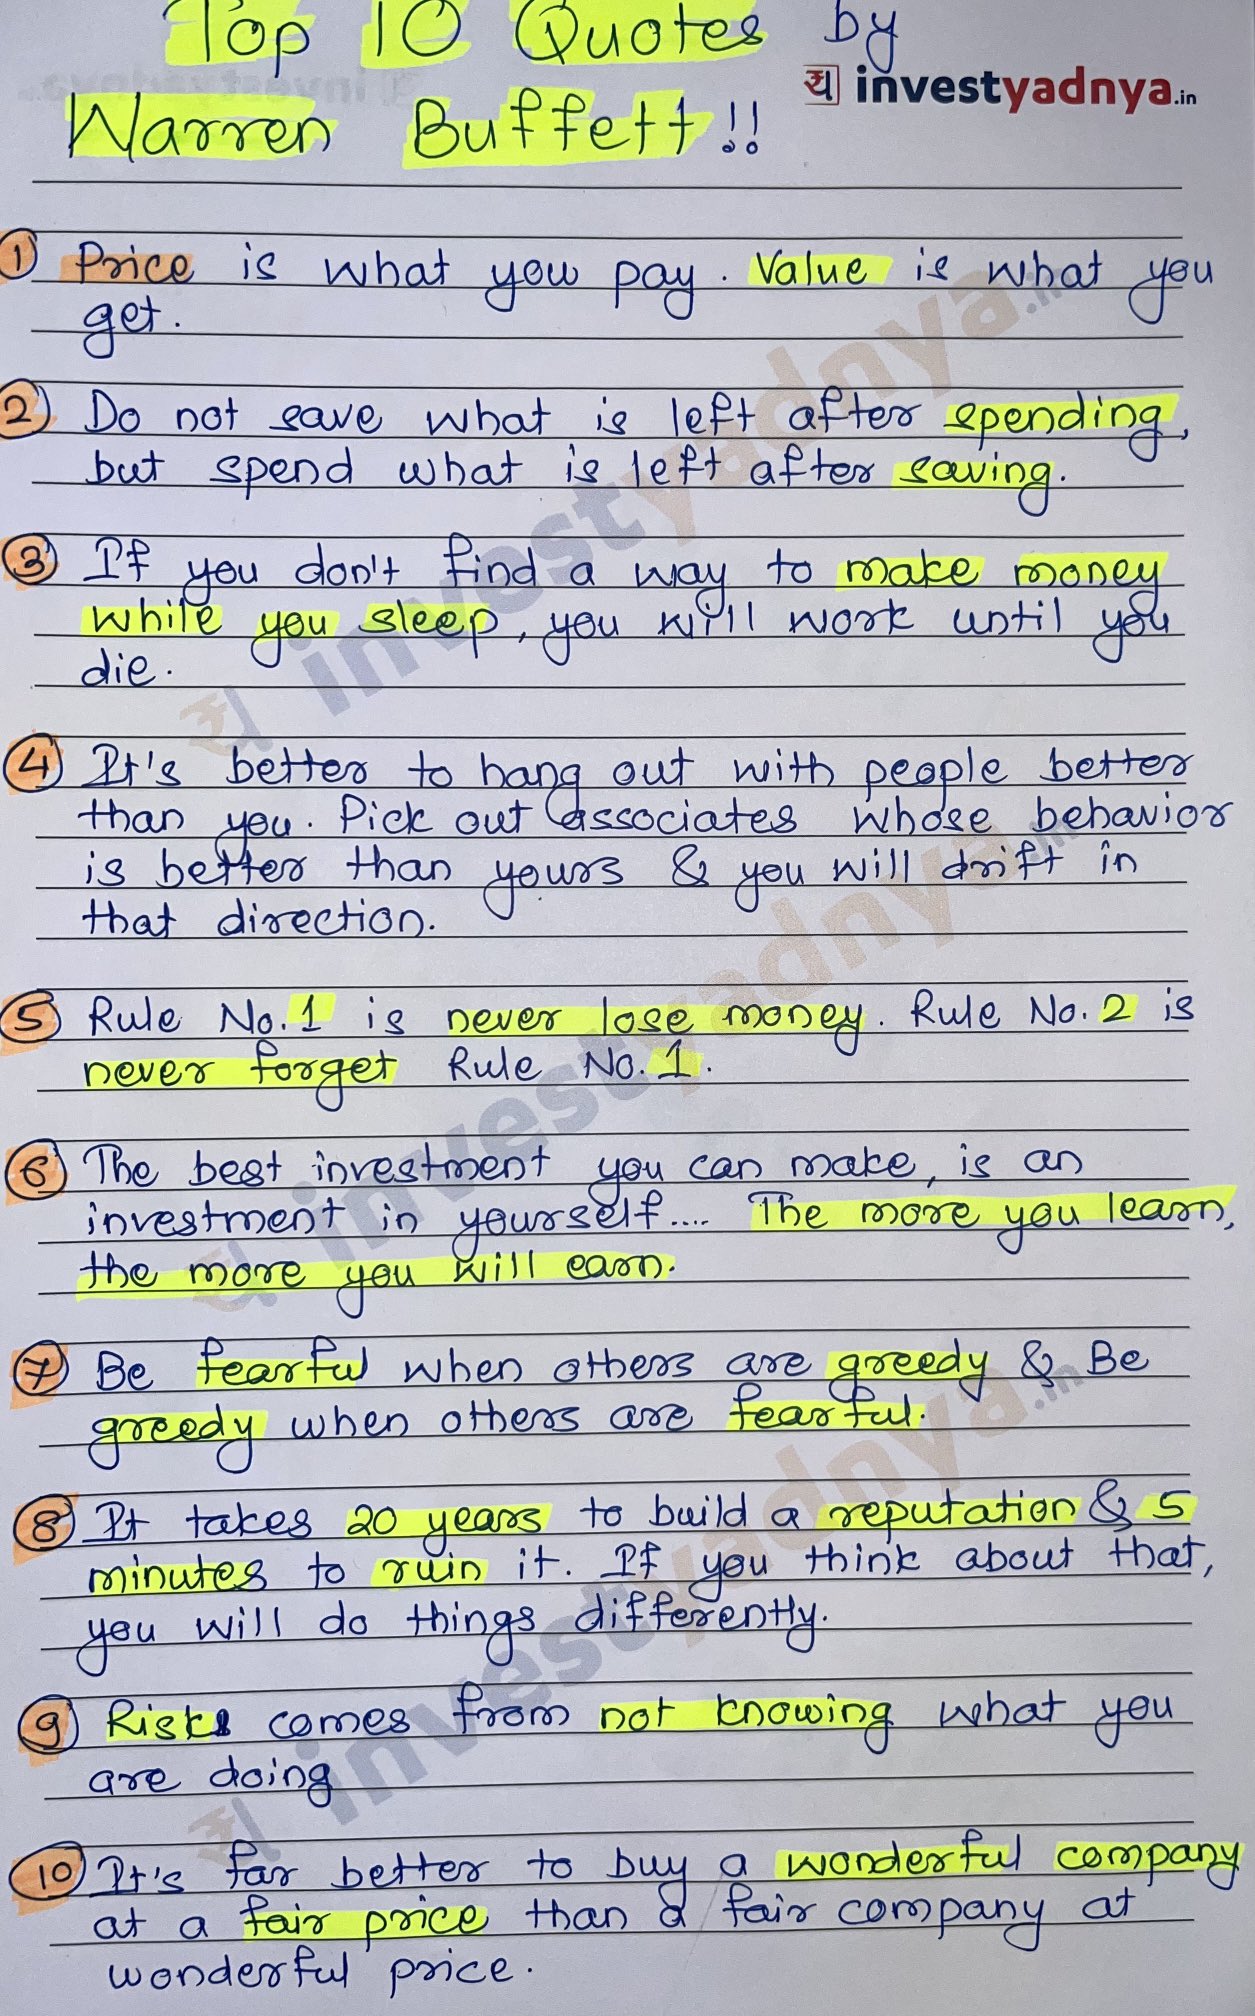 Top 10 Quotes by
य investyadnya.in
Warren Buffett!!
1 Price is what you pay. Value is what you
get.
2 Do not save what is left after spending,
but spend what is left after saving.
3 If you don't find a way to make money
while you sleep, you will work until you
die.
4 It's better to hang out with people better
than you. Pick out associates whose behavior
is better than yours & you will drift in
that direction.
5 Rule No.1 is never lose money. Rule No.2 is
never forget Rule No.1.
6 The best investment you can make, is an
investment in yourself.... The more you learn,
the more you will earn.
7 Be fearful when others are greedy & Be
greedy when others are fearful.
8 It takes 20 years to build a reputation & 5
minutes to ruin it. If you think about that,
you will do things differently.
9 Risk comes from not knowing what you
are doing
10 It's far better to buy a wonderful company
at a fair price than a fair company at
wonderful price.
य investyadnya.in
य investyadnya.in
य investyadnya.in